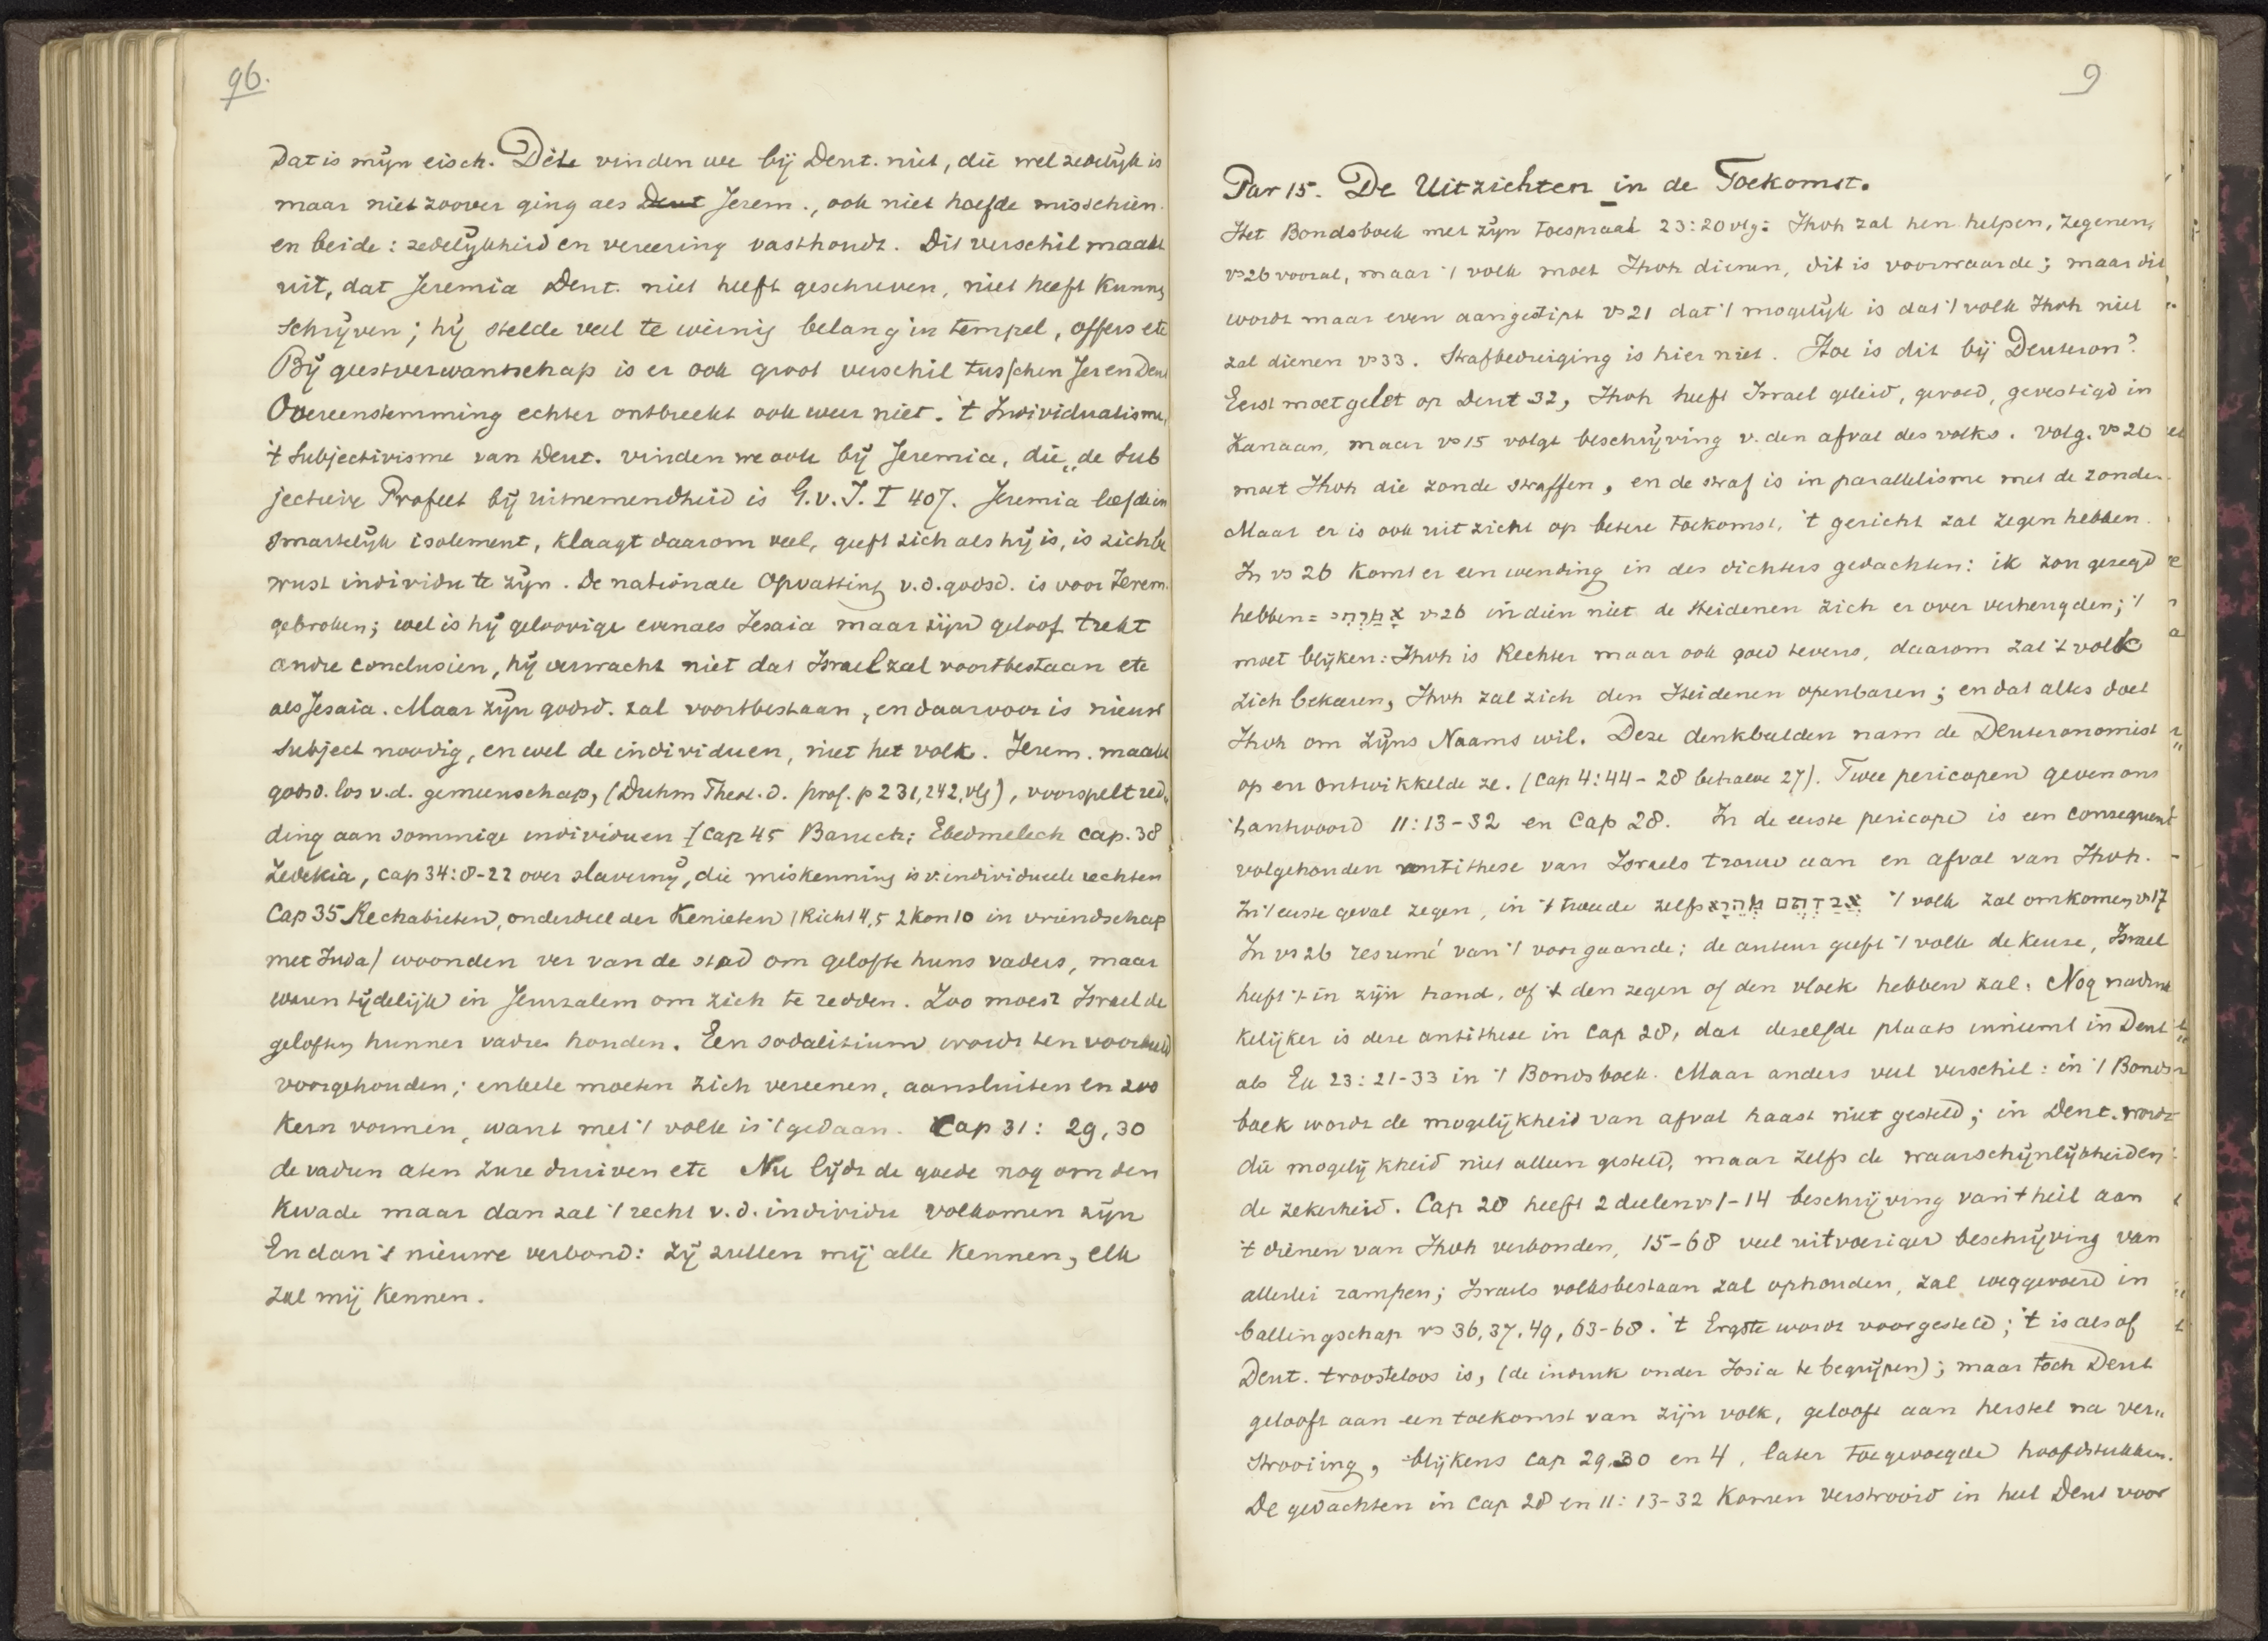 96.
Dat is mijn eisch. Dete vinden we bij Deut. niet, die wel zedelijk is
maar niet zoover ging als Deut Jerem., ook niet hoefde misschien.
en beide: zedelijkheid en vereering vasthoudt. Dit verschil maakt
uit, dat Jeremia Deut. niet heeft geschreven, niet heeft kunnen
schrijven; hij stelde veel te weinig belang in tempel, offers etc
Bij geestverwantschap is er ook groot verschil tusschen Jer en Deut
Overeenstemming echter ontbreekt ook weer niet. 't Individualisme,
't Subjectivisme van Deut. vinden we ook bij Jeremia, die „de Sub
jectieve Profeet bij uitnemendheid is G.v.I. I 407. Jeremia leefde in
smartelijk isolement, klaagt daarom veel, geeft zich als hij is, is zich be
wust individu te zijn. De nationale Opvatting v.d. godsd. is voor Jerem.
gebroken; wel is hij geloovige evenals Jesaia maar zijn geloof trekt
andre conclusien, hij verwacht niet dat Israel zal voortbestaan etc
als Jesaia. Maar zijn godsd. zal voortbestaan, en daarvoor is nieuw
Subject noodig, en wel de individuen, niet het volk. Jerem. maakt
godsd. los v.d. gemeenschap, (Duhm Theol. d. prof. p 231, 242, vlg), voorspelt red„
ding aan sommige individuen (Cap 45 Baruch; Ebedmelech cap. 38
Zedekia, cap 34:8-22 over slavernij, die miskenning is v. individueele rechten
Cap 35 Rechabieten, onderdeel der Kenieten (Richt 4,5 2 Kon 10 in vriendschap
met Juda) woonden ver van de stad om gelofte huns vaders, maar
waren tijdelijk in Jeruzalem om zich te redden. Zoo moest Israel de
geloften hunner vadren houden. Een sodalitium wordt ten voorbeeld
voorgehouden; enkele moeten zich vereenen, aansluiten en zoo
kern vormen, want met 't volk is 't gedaan. Cap 31: 29, 30
de vadren aten zure druiven etc Nu lijdt de goede nog om den
kwade maar dan zal 't recht v.d. individu volkomen zijn
En dan 't nieuwe verbond: zij zullen mij alle kennen, elk
zal mij kennen.
9
Par 15. De Uitzichten in de Toekomst.
Het Bondsboek met zijn toespraak 23:20 vlg: Jhvh zal hen helpen, zegenen,
vs 26 vooral, maar 't volk moet Jhvh dienen, dit is voorwaarde; maar dit
wordt maar even aangestipt vs 21 dat 't mogelijk is dat 't volk Jhvh niet
zal dienen vs 33. Strafbedreiging is hier niet. Hoe is dit bij Deuteron?
Eerst moet gelet op Deut 32, Jhvh heeft Israel geleid, gevoed, gevestigd in
Kanaan, maar vs 15 volgt beschrijving v. den afval des volks. volg. vs 20
moet Jhvh die zonde straffen, en de straf is in parallelisme met de zonden.
Maar er is ook uitzicht op betere toekomst, 't gericht zal zegen hebben.
In vs 26 komt er een wending in des dichters gedachten: ik zou gezegd
hebben = vs 26 indien niet de Heidenen zich er over verheugden; 't
moet blijken: Jhvh is Rechter maar ook goed tevens, daarom zal 't volk
zich bekeeren, Jhvh zal zich den Heidenen openbaren; en dat alles doet
Jhvh om Zijns Naams wil. Deze denkbeelden nam de Deuteronomist
op en ontwikkelde ze. (Cap 4:44 - 28 behalve 27). Twee pericopen geven ons
't antwoord 11:13-32 en Cap 28. In de eerste pericope is een consequent
volgehouden antithese van Israels trouw aan en afval van Jhvh.
In 't eerste geval zegen, in 't tweede zelfs 't volk zal omkomen vs 17
In vs 26 resumé van 't voorgaande; de auteur geeft 't volk de keuze, Israel
heeft 't in zijn hand, of 't den zegen of den vloek hebben zal. Nog nadruk
kelijker is deze antithese in Cap 28, dat dezelfde plaats inneemt in Deut
als Ex 23:21-33 in 't Bondsboek. Maar anders veel verschil: in 't Bonds
boek wordt de mogelijkheid van afval haast niet gesteld; in Deut. wordt
die mogelijkheid niet alleen gesteld, maar zelfs de waarschijnlijkheid en
de zekerheid. Cap 28 heeft 2 deelen vs 1-14 beschrijving van 't heil aan
't dienen van Jhvh verbonden, 15-68 veel uitvoeriger beschrijving van
allerlei rampen; Israels volksbestaan zal ophouden, zal weggevoerd in
ballingschap vs 36, 37, 49, 63-68. 't Ergste wordt voorgesteld; 't is alsof
Deut. troosteloos is, (de indruk onder Josia te begrijpen); maar toch Deut
gelooft aan een toekomst van zijn volk, gelooft aan herstel na ver„
strooiing, blijkens cap 29, 30 en 4, later toegevoegde hoofdstukken.
De gedachten in cap 28 en 11: 13-32 komen verstrooid in heel Deut voor